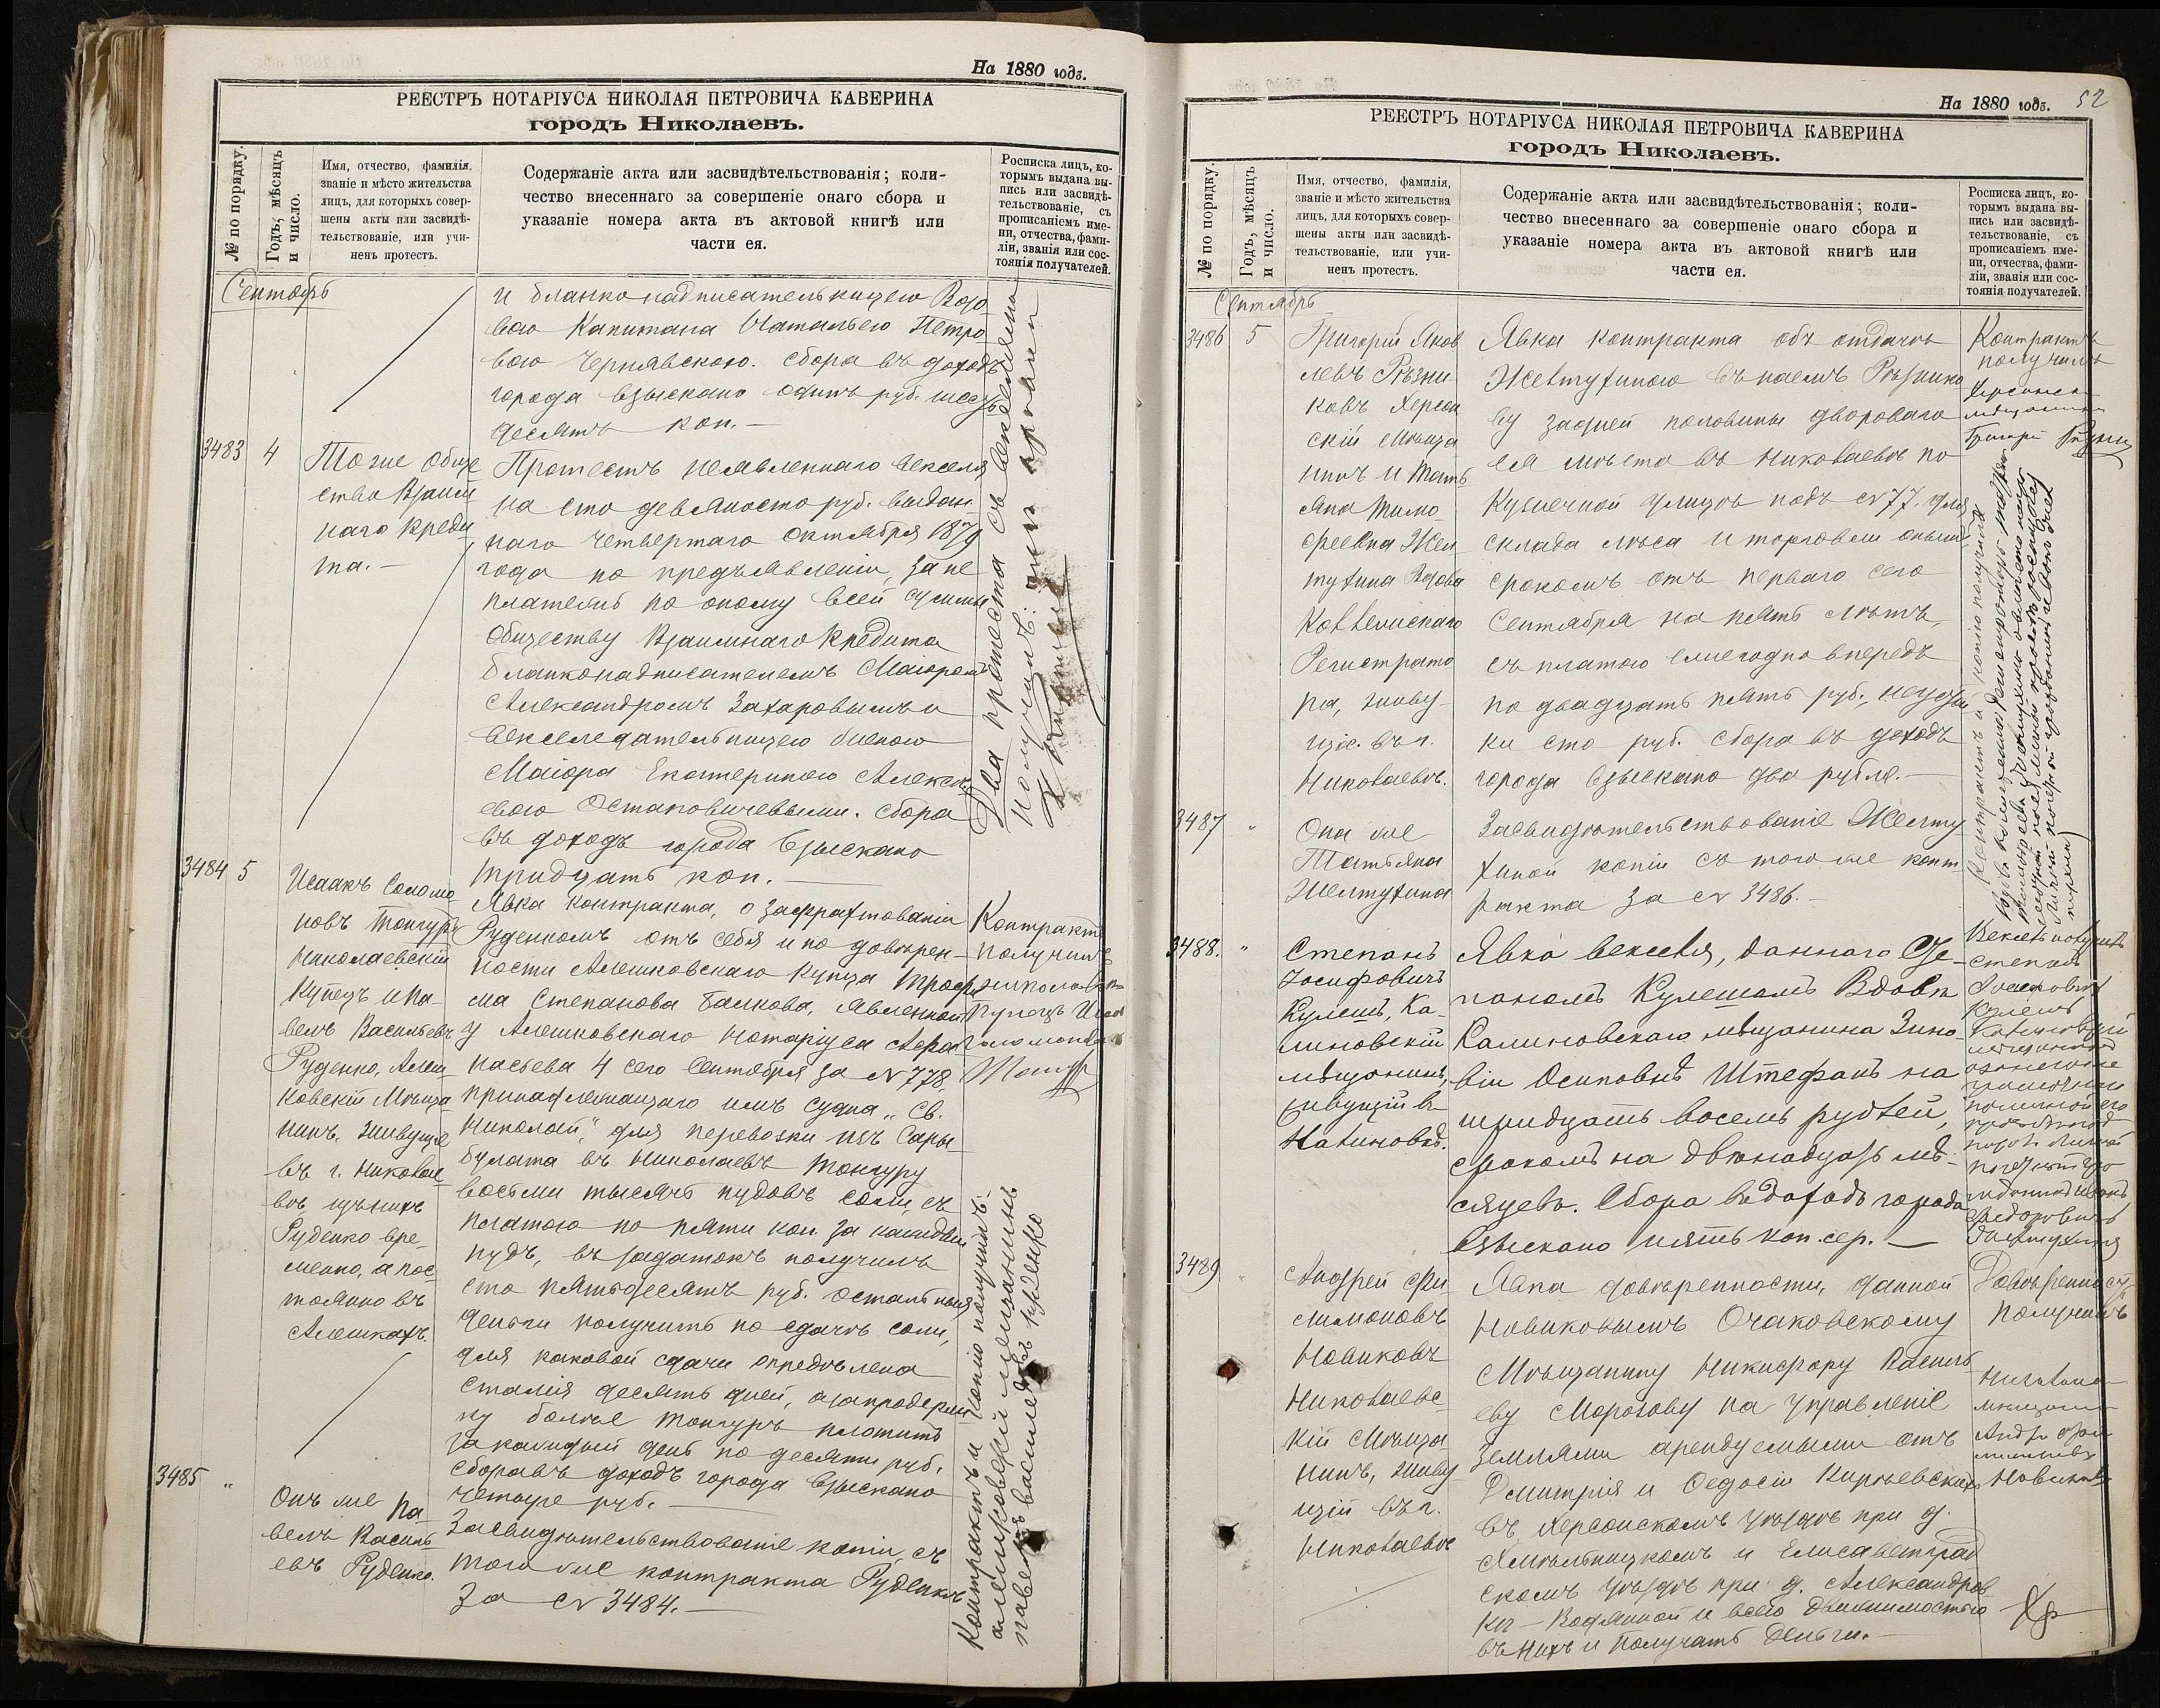 На 1880 годъ.
РЕЕСТРЪ НОТАРІУСА НИКОЛАЯ ПЕТРОВИЧА КАВЕРИНА
городъ Николаевъ.
№ по порядку.
Годъ, мѣсяцъ
и число.
Имя, отчество, фамилія,
званіе и мѣсто жительства
лицъ, для которыхъ совер-
шены акты или засвидѣ-
тельствованіе, или учи-
ненъ протестъ.
Содержаніе акта или засвидѣтельствованія; коли-
чество внесеннаго за совершеніе онаго сбора и
указаніе номера акта въ актовой книгѣ или
части ея.
Росписка лицъ, ко-
торымъ выдана вы-
пись или засвидѣ-
тельствованіе, съ
прописаніемъ име-
ни, отчества, фами-
ліи, званія или сос-
тоянія получателей.
Сентябрь
и бланконадписательницею Вдо-
вою Капитана Натальею Петро-
вою Чернявскою. Сбора въ доходъ
города взыскано одинъ руб. шесть
десятъ коп.—
3483 4
Тоже Обще
ство Взаим
наго Креди
та.—
Протестъ неявленнаго векселя
на сто девяносто руб. выдан
наго четвертаго Октября 1879
года по предъявленіи, за не
платежъ по оному всей суммы
Обществу Взаимнаго Кредита
бланконадписателемъ Маіоромъ
Александромъ Захаровымъ и
векселедательницею женою
Маіора Екатериною Алексѣ
евою Остановичевыми. Сбора
въ доходъ города взыскано
тридцать коп.—
Два протеста съ векселями
получилъ:
3484 5
Исаакъ Соломо
новъ Тонгуръ
Николаевскій
Купецъ и Па-
велъ Васильевъ
Руденко, Алеш
ковскій Мѣща
нинъ, живущіе
въ г. Николае
вѣ, изъ нихъ
Руденко вре-
менно, а пос-
тоянно въ
Алешкахъ.
Явка контракта, о зафрахтованіи
Руденкомъ отъ себя и по довѣрен-
ности Алешковскаго купца Трофи
ма Степанова Балкова, явленной
у Алешковскаго Нотаріуса Афа
насьева 4 сего Сентября за № 778
принадлежащаго имъ судна „Св.
Николай", для перевозки изъ Сары
булата въ Николаевъ Тонгуру
восьми тысячъ пудовъ соли, съ
платою по пяти коп. за каждый
пудъ, въ задатокъ получилъ
сто пятьдесятъ руб. остальныя
деньги получить по сдачѣ соли,
для каковой сдачи опредѣлена
сталія десять дней, а за продерж
ку болѣе Тонгуръ платитъ
за каждый день по десяти руб.
Сбора въ доходъ города взыскано
четыре руб.—
Контрактъ
получилъ
3485 "
Онъ же Па
велъ Василь
евъ Руденко.
Засвидѣтельствованіе копіи, съ
того же контракта Руденко
за № 3484.—
Контрактъ и копію получилъ:
алешковскій мещанинъ
павелъ василевъ руденко
На 1880 годъ. 52
РЕЕСТРЪ НОТАРІУСА НИКОЛАЯ ПЕТРОВИЧА КАВЕРИНА
городъ Николаевъ.
№ по порядку.
Годъ, мѣсяцъ
и число.
Имя, отчество, фамилія,
званіе и мѣсто жительства
лицъ, для которыхъ совер-
шены акты или засвидѣ-
тельствованіе, или учи-
ненъ протестъ.
Содержаніе акта или засвидѣтельствованія; коли-
чество внесеннаго за совершеніе онаго сбора и
указаніе номера акта въ актовой книгѣ или
части ея.
Росписка лицъ, ко-
торымъ выдана вы-
пись или засвидѣ-
тельствованіе, съ
прописаніемъ име-
ни, отчества, фами-
ліи, званія или сос-
тоянія получателей.
Сентябрь
3486 5
Григорій Яков
левъ Рѣзни
ковъ Херсон
скій Мѣща
нинъ и Тать
яна Тимо-
феевна Жел
тухина Вдова
Коллежскаго
Регистрато
ра, живу-
щіе въ г.
Николаевѣ.
Явка контракта объ отдачѣ
Желтухиною въ наемъ Рѣзнико
ву задней половины двороваго
ея мѣста въ Николаевѣ по
Кузнечной улицѣ подъ № 77, для
склада лѣса и торговли онымъ
срокомъ отъ перваго сего
Сентября на пять лѣтъ,
съ платою ежегодно впередъ
по двадцать пять руб., неустой
ки сто руб. Сбора въ доходъ
города взыскано два рубля.—
Контрактъ
получилъ
Херсонск
мѣщанинъ
Григорій Рѣзни
3487 "
Она же
Татьяна
Желтухина
Засвидѣтельствованіе Желту
хиной копіи съ того же конт
ракта за № 3486.—
Контрактъ и копію получила
3488. "
Степанъ
Іосифовичъ
Кулешъ, Ка-
линовскій
мѣщанинъ,
живущій въ
Калиновкѣ.
Явка векселя, даннаго Сте-
паномъ Кулешомъ Вдовѣ
Калиновскаго мѣщанина Зино-
віи Осиповнѣ Штефанъ на
тридцать восемь рублей,
срокомъ на двѣнадцать мѣ-
сяцевъ. Сбора въ доходъ города
взыскано пять коп. сер.—
Вексель получилъ
Степанъ
3489 "
Андрей Фи
лимоновъ
Новиковъ
Николаевс-
кій Мѣща-
нинъ, живу
щій въ г.
Николаевѣ
Явка довѣренности, данной
Новиковымъ Очаковскому
Мѣщанину Никифору Василь
еву Морозову на управленіе
землями арендуемыми отъ
Дмитрія и Ѳедосіи Киріевскихъ
въ Херсонскомъ уѣздѣ при д.
Хмѣльницкомъ и Елисаветград
скомъ уѣздѣ при д. Александров
кѣ-Водяной и всею движимостью
въ нихъ и получать деньги.—
Довѣренность
получилъ
Николаев
мѣщанинъ
Андрей Фили
моновъ
Новиковъ